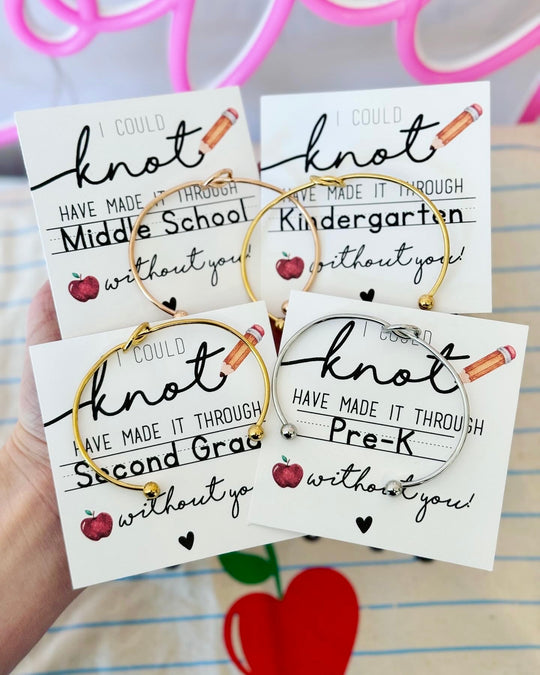 I COULD
knot
HAVE MADE IT THROUGH
Middle School
without you!
I COULD
knot
HAVE MADE IT THROUGH
Kindergarten
without you!
I COULD
knot
HAVE MADE IT THROUGH
Second Grad
without yo
I COULD
knot
HAVE MADE IT THROUGH
Pre-K
without you!